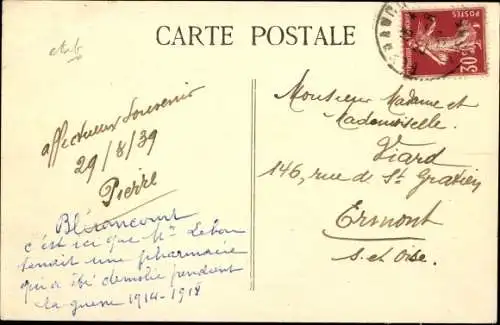 CARTE POSTALE
POSTES
30
affectueux Souvenir
29/8/39
Pierre
Blérancourt
c'est ici que Mr Lebon
tenait une pharmacie
qui a été demolie pendant
la guerre 1914-1918
Monsieur Madame et
Mademoiselle.
Viard
146, rue de St Gratien
Ermont
S. et Oise.